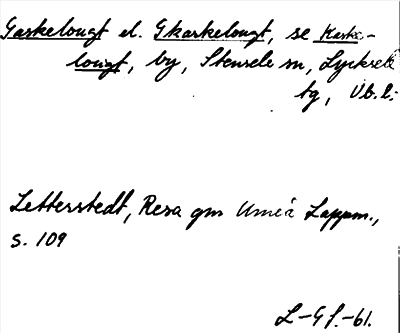 Gaskelougt el. Gkaskelougt, se Kaske-
lougt, by, Stensele sn, Lycksele
tg, Vb.l.
Letterstedt, Resa gm Umeå Lappm.,
s. 109
L-G f.-61.